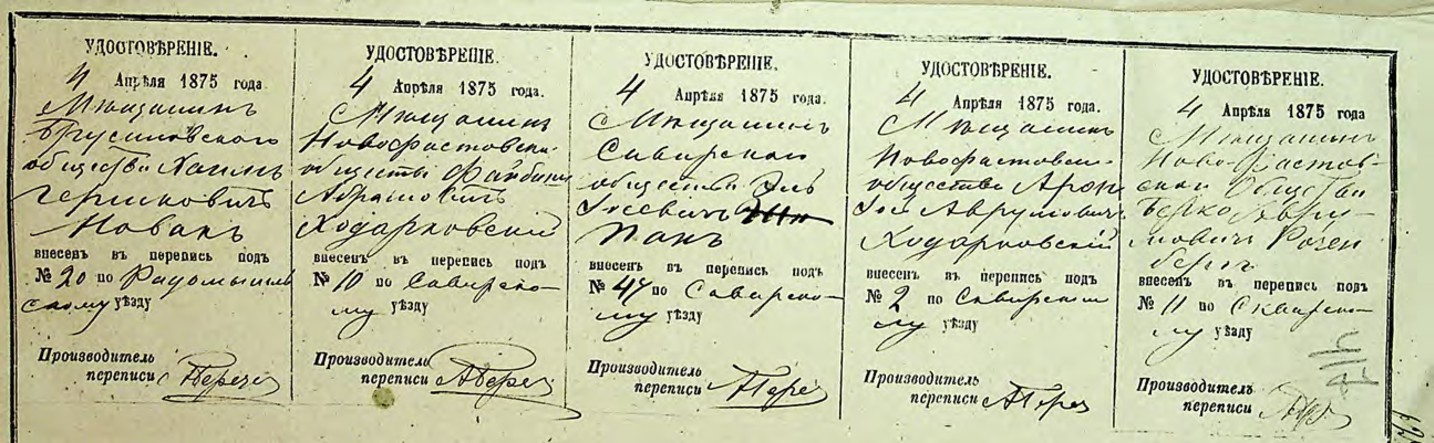 УДОСТОВѢРЕНІЕ.
4 Апрѣля 1875 года
Мѣщанинъ
Брусиловского
общества Хаимъ
Гершковичъ
Новакъ
внесенъ въ перепись подъ
№ 20 по Радомысль
скому уѣзду
Производитель
переписи
УДОСТОВѢРЕНІЕ.
4 Апрѣля 1875 года.
Мѣщанинъ
Новофастовска
общества
Абрамовичъ
Ходарковскій
внесенъ въ перепись подъ
№ 10 по Сквирско-
му уѣзду
Производитель
переписи
УДОСТОВѢРЕНІЕ.
4 Апрѣля 1875 года.
Мѣщанинъ
Сквирскаго
общества
Іосевичъ
Панъ
внесенъ въ перепись подъ
№ 47 по Сквирско-
му уѣзду
Производитель
переписи
УДОСТОВѢРЕНІЕ.
4 Апрѣля 1875 года.
Мѣщанинъ
Новофастовск-
общества Арон
Іос Аврумовичъ
Ходарковскій
внесенъ въ перепись подъ
№ 2 по Сквирско
му уѣзду
Производитель
переписи
УДОСТОВѢРЕНІЕ.
4 Апрѣля 1875 года
Мѣщанинъ
Ново-Фастов-
скаго Общества
Берко Авру-
мовичъ Розен
бергъ
внесенъ въ перепись подъ
№ 11 по Сквирско-
му уѣзду
Производитель
переписи